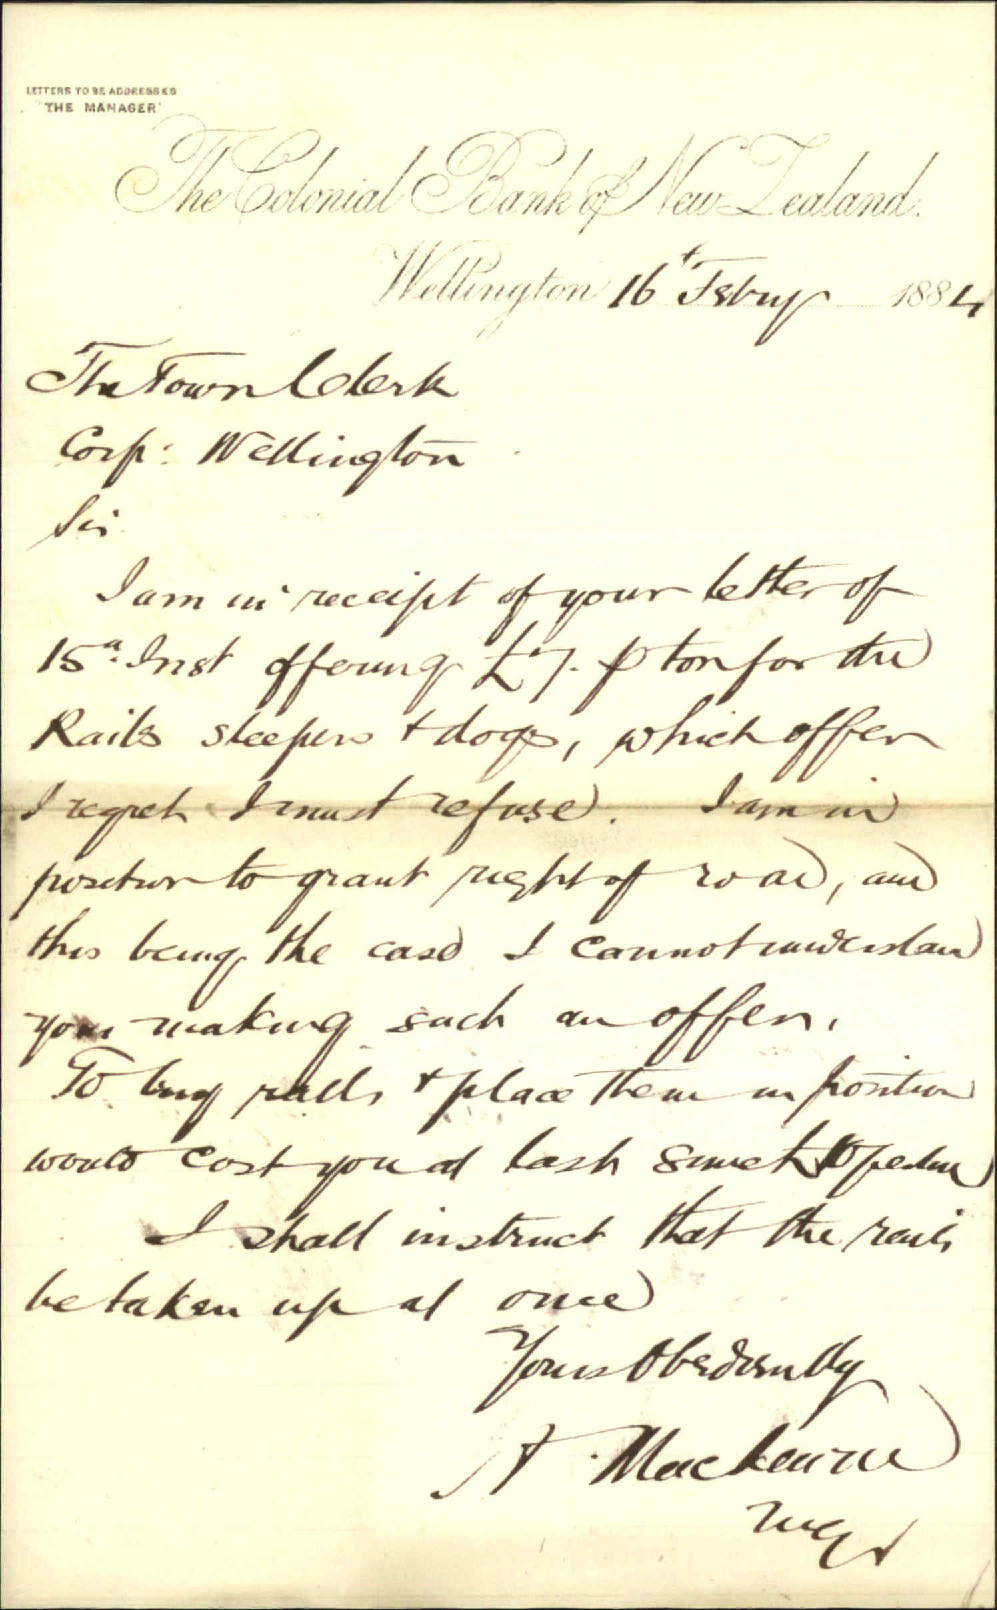 LETTERS TO BE ADDRESSED
"THE MANAGER"
The Colonial Bank of New Zealand.
Wellington 16t Febry 1884
The Town Clerk
Corp: Wellington
Sir
I am in receipt of your letter of
15th Inst offering £7. p ton for the
Rails sleepers + dogs, which offer
I regret I must refuse. I am in
position to grant right of road, and
this being the case I cannot understand
your making such an offer.
To buy rails + place them in position
would cost you at least
I shall instruct that the rails
be taken up at once
Yours Obediently
A Mackenzie
Mgr